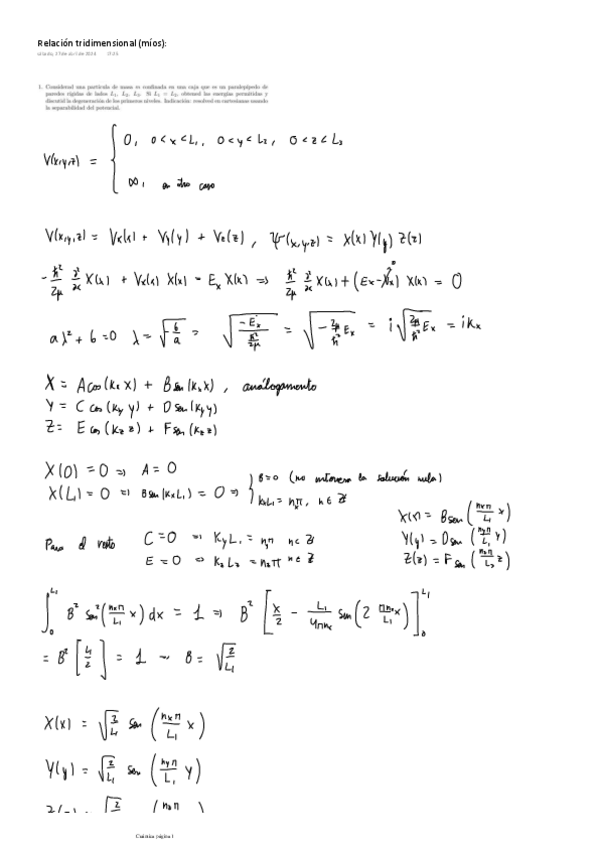 Relación tridimensional (míos):
1. Considerad una partícula de masa m confinada en una caja que es un paralepípedo de
paredes rígidas de lados L₁, L₂, L₃. Si L₁ = L₂, obtened las energías permitidas y
discutid la degeneración de los primeros niveles. Indicación: resolved en cartesianas usando
la separabilidad del potencial.
V(x,y,z) = { 0, 0<x<L₁, 0<y<L₂, 0<z<L₃
∞, en otro caso
V(x,y,z) = Vx(x) + Vy(y) + Vz(z), Ψ(x,y,z) = X(x) Y(y) Z(z)
-ħ²/2μ ∂²/∂x X(x) + Vx(x) X(x) = Ex X(x) ⇒ ħ²/2μ ∂²/∂x X(x) + (Ex - Vx) X(x) = 0
aλ² + b = 0 λ = √(-b/a) = √(-Ex/(ħ²/2μ)) = √(-2μ/ħ² Ex) = i√(2μ/ħ² Ex) = i kx
X = A cos(kx x) + B sen(kx x), análogamente
Y = C cos(ky y) + D sen(ky y)
Z = E cos(kz z) + F sen(kz z)
X(0) = 0 ⇒ A = 0
X(L₁) = 0 ⇒ B sen(kx L₁) = 0 ⇒ { B=0 (no interesa la solución nula)
kx L₁ = nxπ, n ∈ Z
Para el resto C = 0 ⇒ ky L₁ = nyπ n ∈ Z
E = 0 ⇒ kz L₃ = nzπ n ∈ Z
X(x) = B sen(nxπ/L₁ x)
Y(y) = D sen(nyπ/L₁ y)
Z(z) = F sen(nzπ/L₃ z)
∫₀^L₁ B² sen²(nxπ/L₁ x) dx = 1 ⇒ B² [x/2 - L₁/4πnx sen(2 πnx/L₁ x)]₀^L₁
= B² [L₁/2] = 1 → B = √(2/L₁)
X(x) = √(2/L₁) sen(nxπ/L₁ x)
Y(y) = √(2/L₁) sen(nyπ/L₁ y)
Cuántica página 1